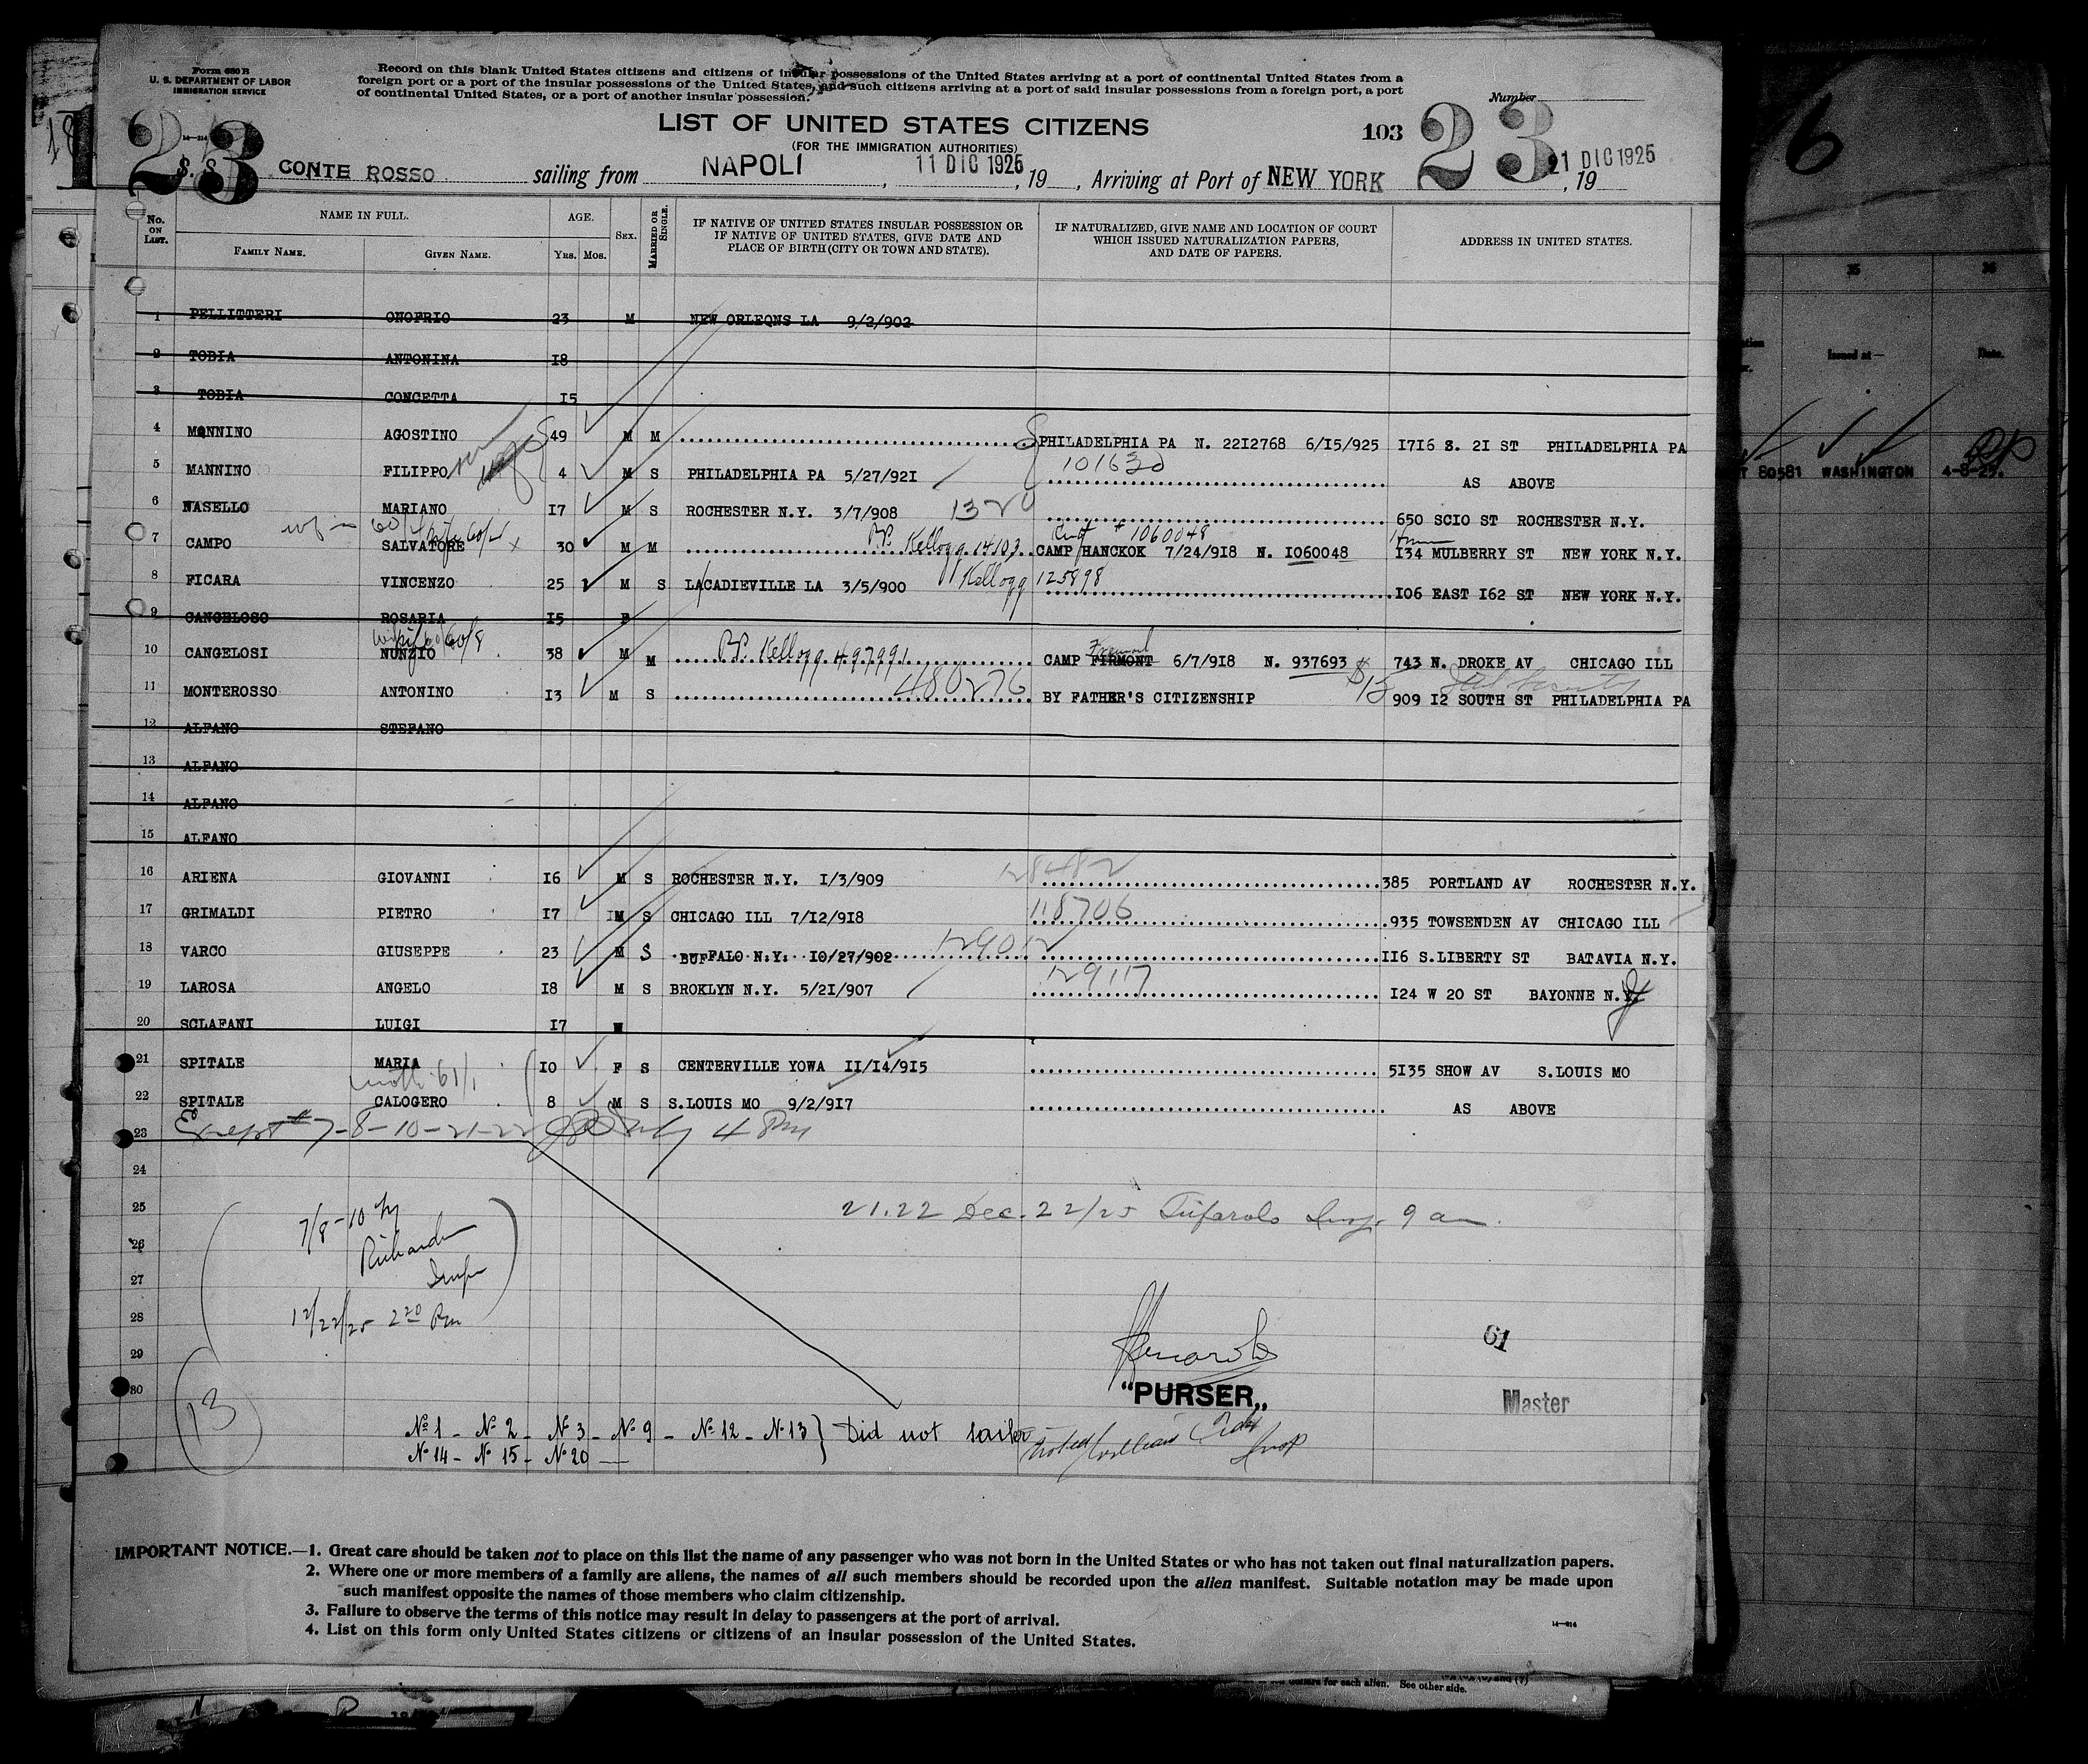 Form 630 B
U. S. DEPARTMENT OF LABOR
IMMIGRATION SERVICE
Record on this blank United States citizens and citizens of insular possessions of the United States arriving at a port of continental United States from a
foreign port or a port of the insular possessions of the United States, and such citizens arriving at a port of said insular possessions from a foreign port, a port
of continental United States, or a port of another insular possession.
Number
LIST OF UNITED STATES CITIZENS
(FOR THE IMMIGRATION AUTHORITIES)
103
23 23
6
S. S. CONTE ROSSO sailing from NAPOLI, 11 DIC 1925, 19 , Arriving at Port of NEW YORK 21 DIC 1925, 19
No. ON LIST. NAME IN FULL. FAMILY NAME. GIVEN NAME. AGE. YRS. MOS. SEX. MARRIED OR SINGLE.
IF NATIVE OF UNITED STATES INSULAR POSSESSION OR
IF NATIVE OF UNITED STATES, GIVE DATE AND
PLACE OF BIRTH (CITY OR TOWN AND STATE).
IF NATURALIZED, GIVE NAME AND LOCATION OF COURT
WHICH ISSUED NATURALIZATION PAPERS,
AND DATE OF PAPERS.
ADDRESS IN UNITED STATES.
35 36
Issued at— Date.
1 PELLITTERI ONOFRIO 23 M NEW ORLEQNS LA 9/2/902
2 TOBIA ANTONINA I8
3 TOBIA CONCETTA I5
4 MANNINO AGOSTINO 49 M M PHILADELPHIA PA N. 22I2768 6/I5/925 I7I6 S. 2I ST PHILADELPHIA PA
5 MANNINO FILIPPO 4 M S PHILADELPHIA PA 5/27/92I 101630 AS ABOVE
80581 WASHINGTON 4-8-25.
6 NASELLO MARIANO I7 M S ROCHESTER N.Y. 3/7/908 650 SCIO ST ROCHESTER N.Y.
# 1060048
7 CAMPO SALVATORE 30 M M Kellogg 14103 CAMP HANCKOK 7/24/9I8 N. I060048 I34 MULBERRY ST NEW YORK N.Y.
8 FICARA VINCENZO 25 M S LACADIEVILLE LA 3/5/900 Kellogg 125898 I06 EAST I62 ST NEW YORK N.Y.
9 CANGELOSO ROSARIA I5 F
wife 60/8
10 CANGELOSI NUNZIO 38 M M Kellogg 497991 CAMP FIRMONT 6/7/9I8 N. 937693 743 N. DROKE AV CHICAGO ILL
11 MONTEROSSO ANTONINO I3 M S 480276 BY FATHER'S CITIZENSHIP 909 I2 SOUTH ST PHILADELPHIA PA
12 ALFANO STEFANO
13 ALFANO
14 ALFANO
15 ALFANO
16 ARIENA GIOVANNI I6 M S ROCHESTER N.Y. I/3/909 128482 385 PORTLAND AV ROCHESTER N.Y.
17 GRIMALDI PIETRO I7 M S CHICAGO ILL 7/I2/9I8 118706 935 TOWSENDEN AV CHICAGO ILL
18 VARCO GIUSEPPE 23 M S BUFFALO N.Y. I0/27/902 129012 II6 S.LIBERTY ST BATAVIA N.Y.
19 LAROSA ANGELO I8 M S BROKLYN N.Y. 5/2I/907 129117 I24 W 20 ST BAYONNE N.J.
20 SCLAFANI LUIGI I7 M
21 SPITALE MARIA I0 F S CENTERVILLE YOWA II/I4/9I5 5I35 SHOW AV S.LOUIS MO
moth. 61/1
22 SPITALE CALOGERO 8 M S S.LOUIS MO 9/2/9I7 AS ABOVE
23 Except # 7-8-10-21-22 4 Pm
24
25 7/8-10 by 21.22 Dec. 22/25 Insp. 9 am.
26
27 Insp
28 12/22/25 2 20 Pm
61
29
30 "PURSER„ Master
13
No 1 - No 2 - No 3 - No 9 - No 12 - No 13 } Did not sail
No 14 - No 15 - No 20
IMPORTANT NOTICE.—1. Great care should be taken not to place on this list the name of any passenger who was not born in the United States or who has not taken out final naturalization papers.
2. Where one or more members of a family are aliens, the names of all such members should be recorded upon the alien manifest. Suitable notation may be made upon
such manifest opposite the names of those members who claim citizenship.
3. Failure to observe the terms of this notice may result in delay to passengers at the port of arrival.
4. List on this form only United States citizens or citizens of an insular possession of the United States.
14—214
for each alien. See other side.